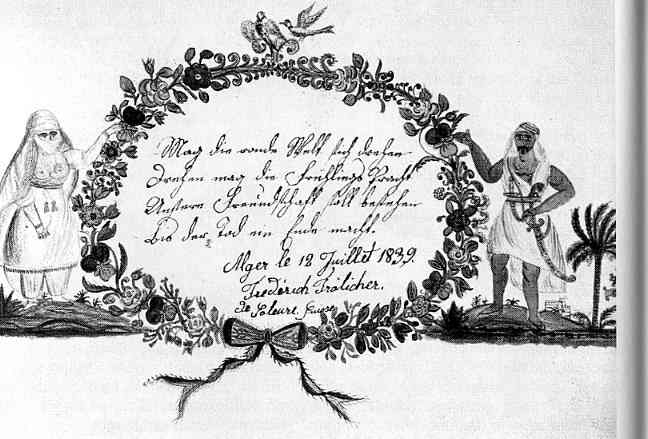 Mag die runde Welt sich drehen
Drehen mag die Frühlings Pracht
Unsere Freundschaft soll bestehen
bis der Tod ein Ende macht.
Alger le 12 Juillet 1839.
Frederich Frölicher.
de Soleure. Suisse